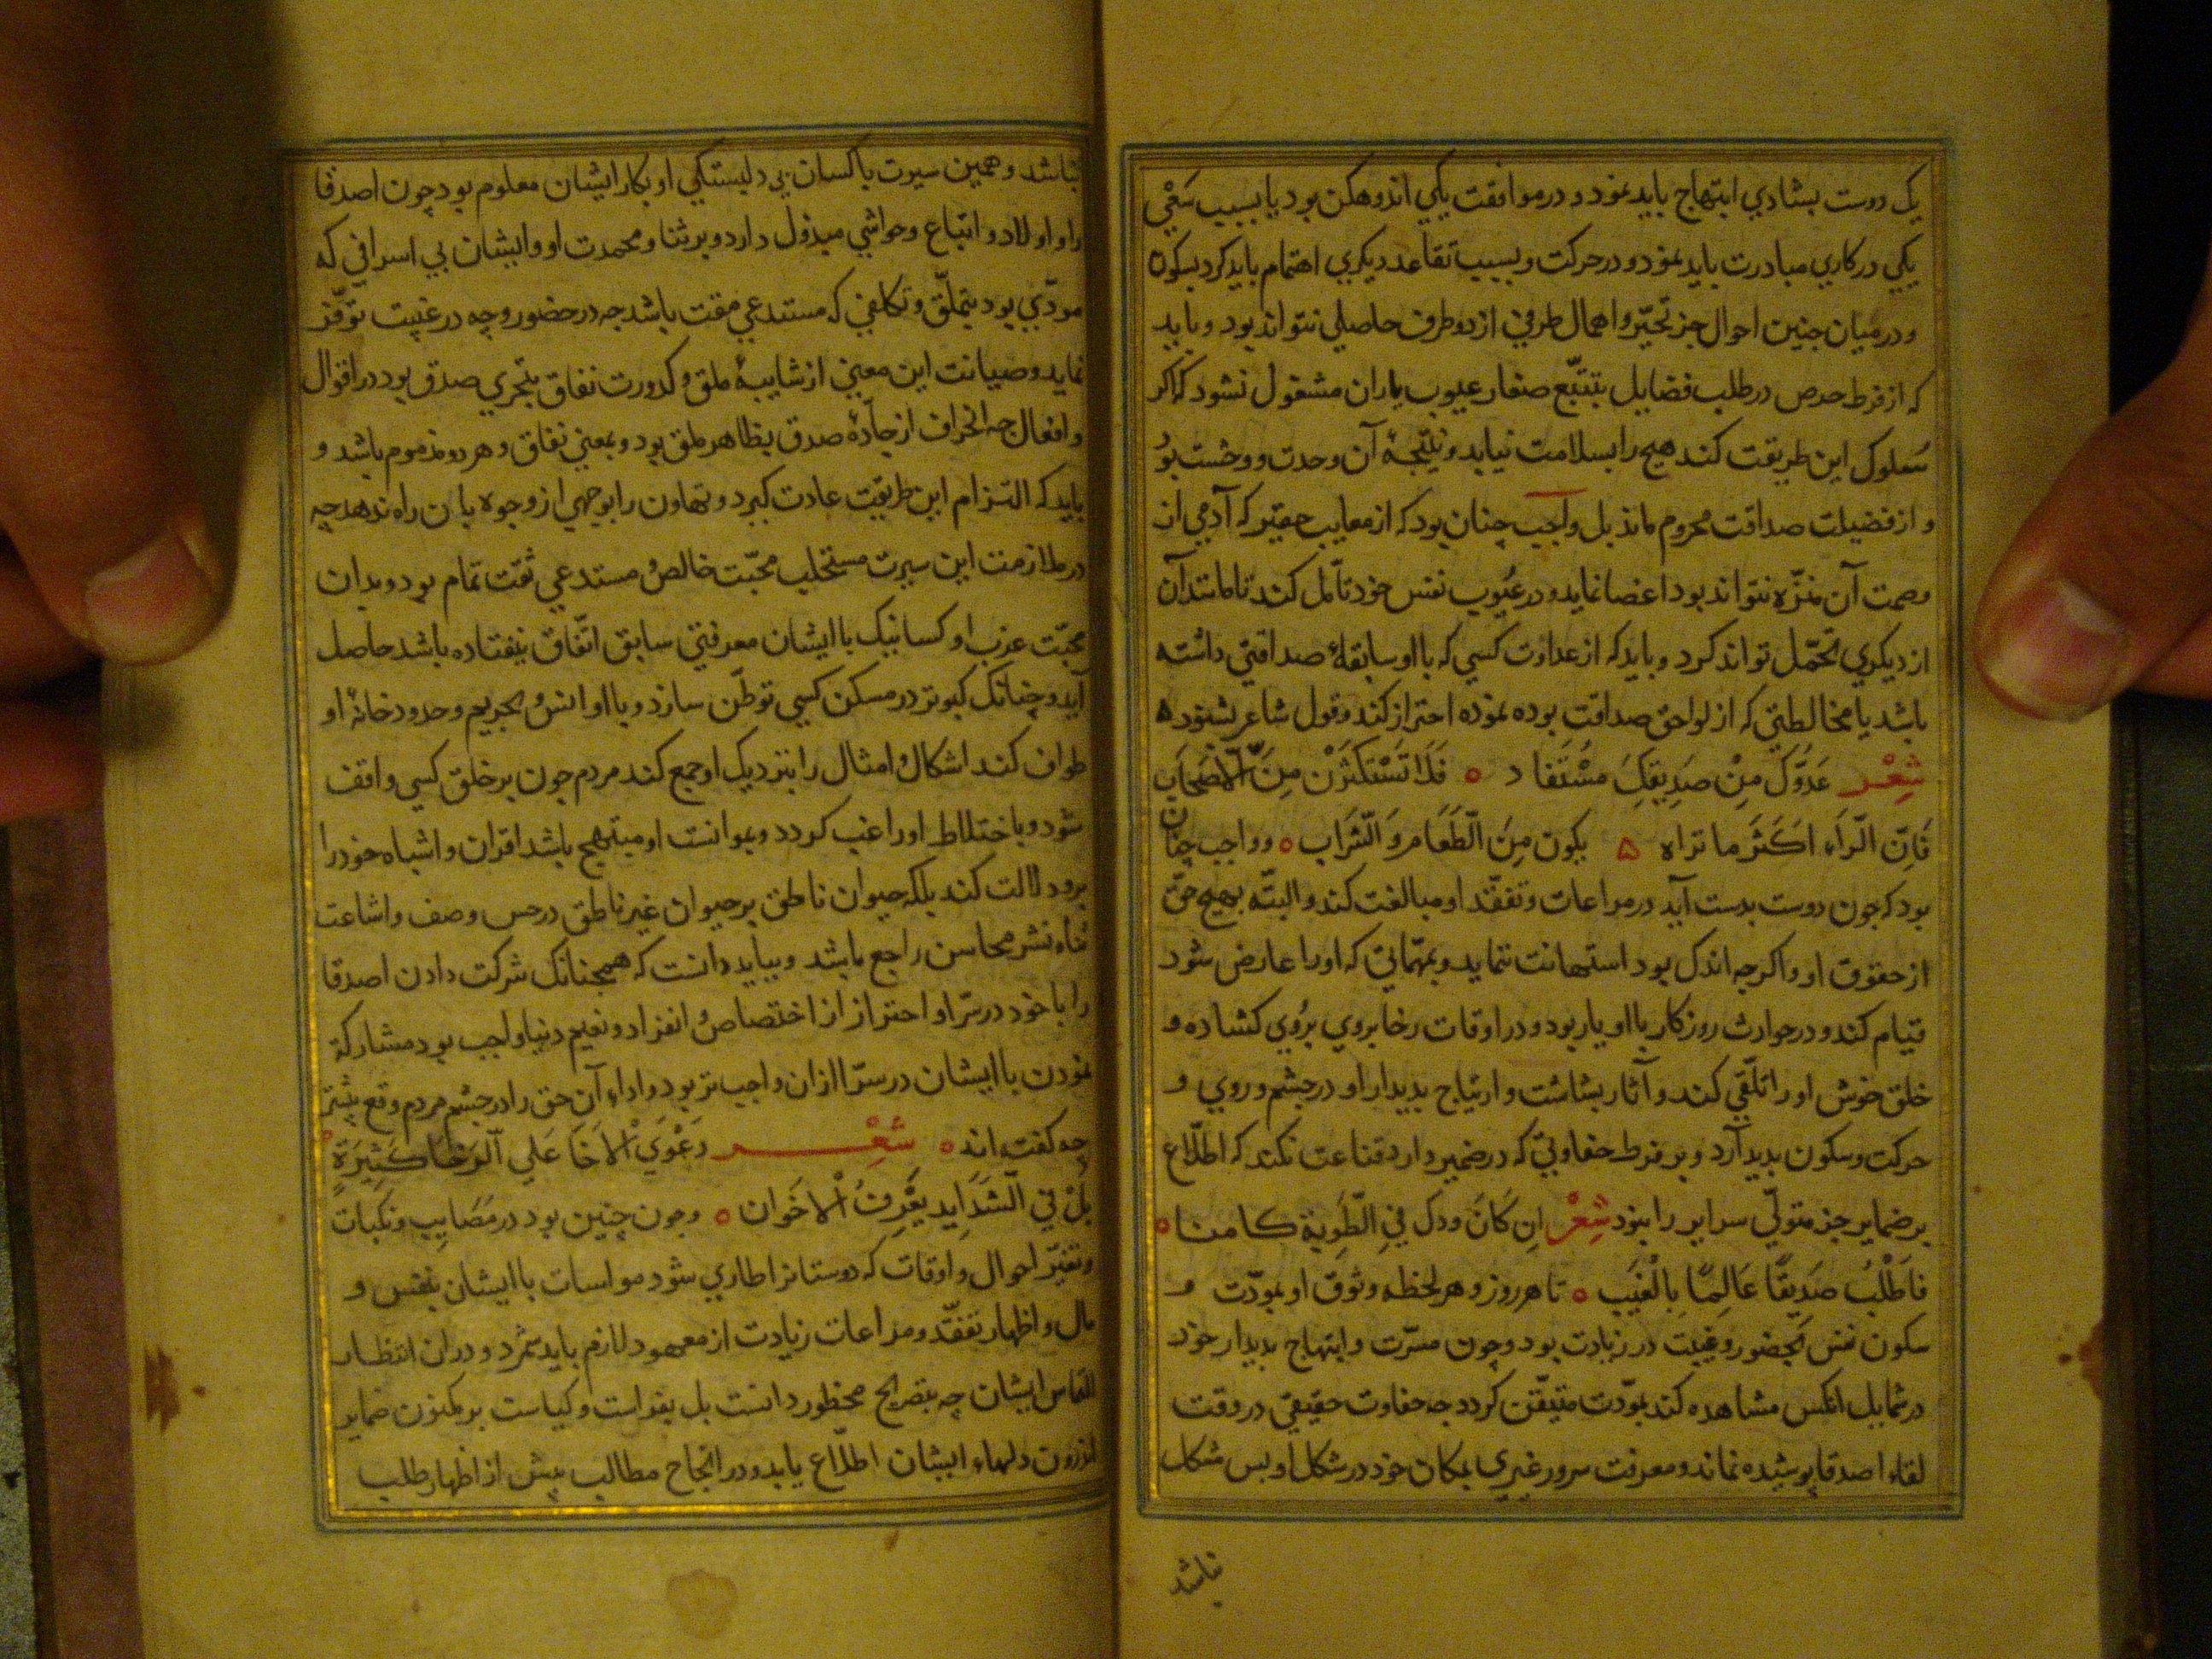 یک دوست بشادي ابتهاج باید نمود و درموافقت یکي اندوهکن بود یا بسبب سَعْي
یکي درکاري مبادرت باید نمود و درحرکت و بسبب تقاعد دیکري اهتمام باید کرد بسکون
و درمیان چنین احوال جز تحیّر و اهمال طرفي از دو طرف حاصلي نتواند بود و باید
که از فرط حرص در طلب فضایل بتتبّع صغار عیوب یاران مشغول نشود که اکر
سُلوک این طریقت کند هیچ را بسلامت نیابد و نتیجهٔ آن وحدت و وحشت بوُ
و از فضیلت صداقت محروم ماند بل واجب چنان بود که از معایب حقیر که آدمي از
وصمت آن منزّه نتواند بود اغضا نماید و در عُیوب نفس خود تأمّل کند تا مانند آن
از دیکري تحمّل تواند کرد و باید که از عداوت کسي که با او سابقهٔ صداقتي داشته
باشد یا مخالطتي که از لواحق صداقت بوده نموده احتراز کند و قول شاعر بشنود ۵
شِعْر عَدُوُّکَ مِنْ صَدِیقِکَ مُسْتَفاد ٥ فَلَا تَسْتَکْثِرَنْ مِنَ الْاَصْحَاب
فَاِنَّ الّرَاء اَکَثَرَ ما تراه ۵ یکون مِنَ الَّطَعَام وَ الَّشَراب ٥ و واجب چنان
بود که چون دوست بدست آید در مراعات و تفقّد او مبالغت کند و البتّه بهیچ حقّ
از حقوق او و اکرچه اندک بود استهانت ننماید و بمهمّاتي که او را عارض شود
قیام کند و در حوادث روزکار با او یار بود و در اوقات رخا بروي برُوي کشاده و
خلق خوش او را تلقّي کند و آثار بشاشت و ارتیاح بدیدار او در جشم و روي و
حرکت و سکون بدید آرد و بر فرط حفاوتي که در ضمیر دارد قناعت نکند که اطلّاع
بر ضمایر جز متولّي سرایر را نبود شِعْر اِن کَانَ ودک فِي الّطَوِیة کامنا ٥
فاَطْلُبْ صَدِیقًا عَالِمًا بِالْغَیَب ٥ تا هر روز و هر لحظه وثوق او بمودّت و
سکون نفس بحضور و غیبت در زیادت بود و چون مسرّت و ابتهاج بدیدار خود
در شمایل انکس مشاهده کند بموّدت متیقّن کردد چه حفاوت حقیقي در وقت
لقاء اصدقا پوشیده نماند و معرفت سرور غیري بمکان خود در شکل او بس مشکل
نباشد
نباشد و همین سیرت با کسان بي دلبستکي او بکار ایشان معلوم بود چون اصدقا
را و اولاد و اتباع و حواشي مبذول دارد و بر ثنا و محمدت او و ایشان بي اسرافي که
مودّي بود بتملّق و تکلفي که مستدعي مقت باشد چه در حضور و چه در غیبت توفّر
نماید و صیانت این معني از شایبهٔ ملق و کدورت نفاق بتحري صدق بود در اقوال
و افعال چه انحراف از جادّهٔ صدق بظاهر ملق بود و بمعني نفاق و هر دو مذموم باشد و
باید که التزام این طریقت عادت کیرد و تهاون را بوجهي از وجوه بان راه ندهد چه
در ملازمت این سیرت مستجلب محبّت خالص و مستدعي ثقت تمام بود و بدان
محبّت غربا و کسانیک با ایشان معرفتي سابق اتّفاق نیفتاده باشد حاصل
آید و چنانک کبوتر در مسکن کسي توطّن سازد و با او انس و بحریم و حدود خانهٔ او
طواف کند اشکال و امثال را بنزدیک او جمع کند مردم چون بر خلق کسي واقف
شود و باختلاط او راغب کردد و بموانست او مبتهج باشد اقران و اشباه خود را
برو دلالت کند بلکه حیوان ناطق بر حیوان غیر ناطق در حس وصف و اشاعت
ثناء نشر محاسن راجع باشد و بباید دانست که همچنانک شرکت دادن اصدقا
را با خود در سرّا و احتراز از اختصاص و انفراد و نعیم دنیا واجب بود مشارکة
نمودن با ایشان در ضرّا ازان واجب تر بود و اداء آن حق را در جشم مردم وقع بیشتر
چه کفته اند ٥ شعْر دَعْوَيَ الْاخَا عَلي الَرخَا کَثِیَرةً
بَلْ فِي الّشَدَاِید یعُرفُ الْاخَوان ٥ و چون چنین بود در مصَایب و نکبات
و تغیّر احوال و اوقات که دوستانرا طاري شود مواسات با ایشان بنفس و
مال و اظهار تفقّد و مراعات زیادت از معهود لازم باید شمرد و دران انتظار
التماس ایشان چه بتصریح محظور دانست بل بفراست و کیاست بر مکنون ضمایر
اندرون دلهاء ایشان اطلّاع یابد و در انجاح مطالب پیش از اظهار طلب